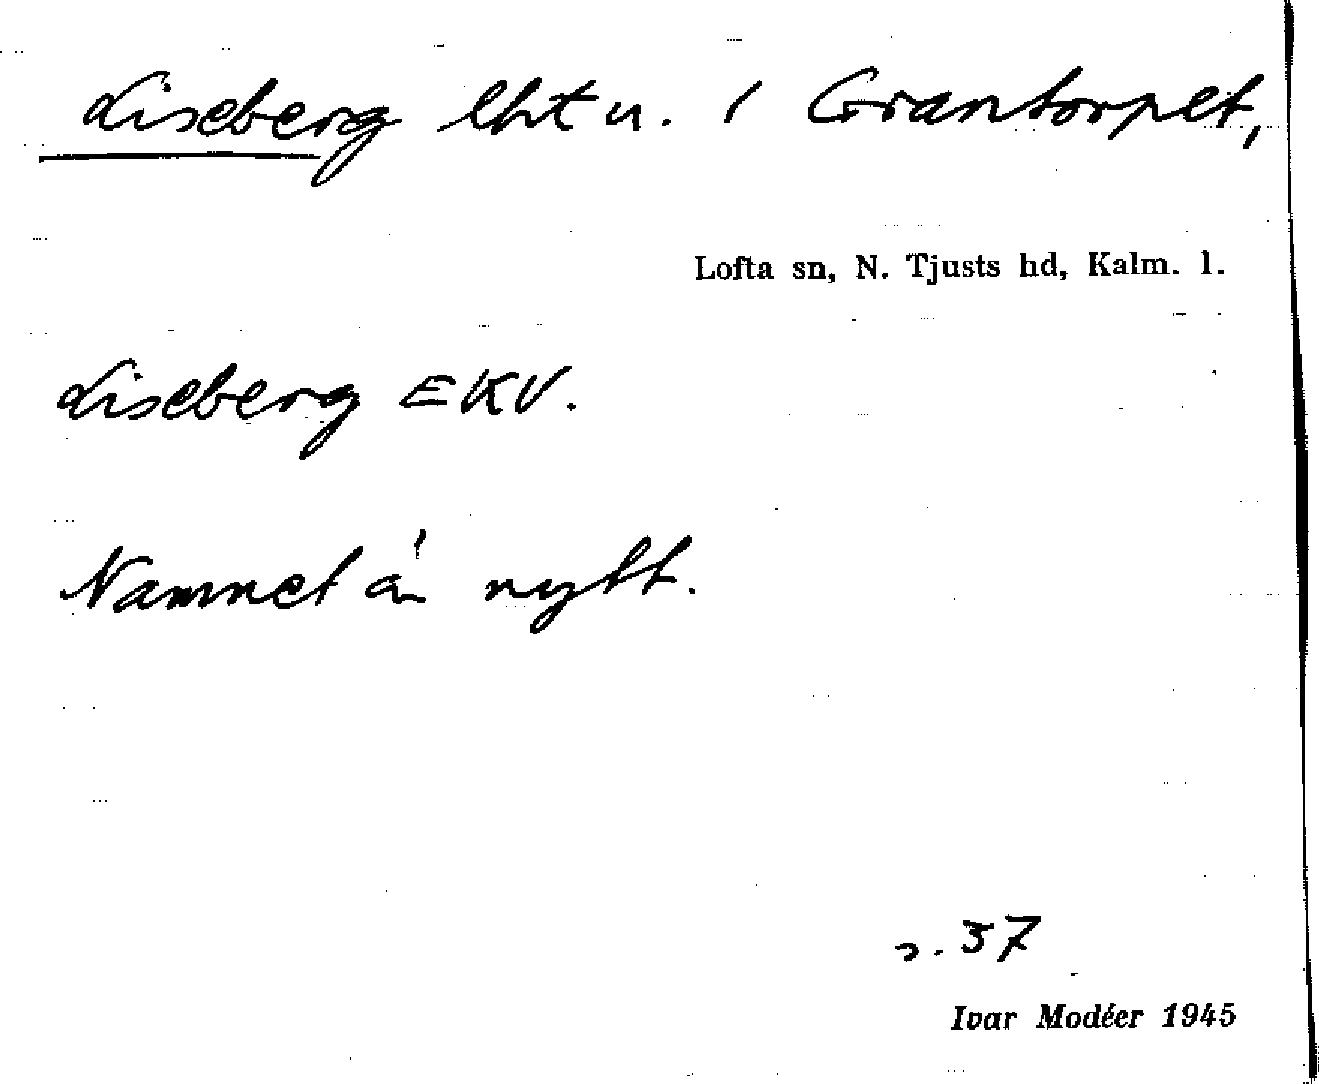 Liseberg lht u. / Grantorpet,
Lofta sn, N. Tjusts hd, Kalm. l.
Liseberg EKV.
Namnet är nytt.
s. 37
Ivar Modéer 1945